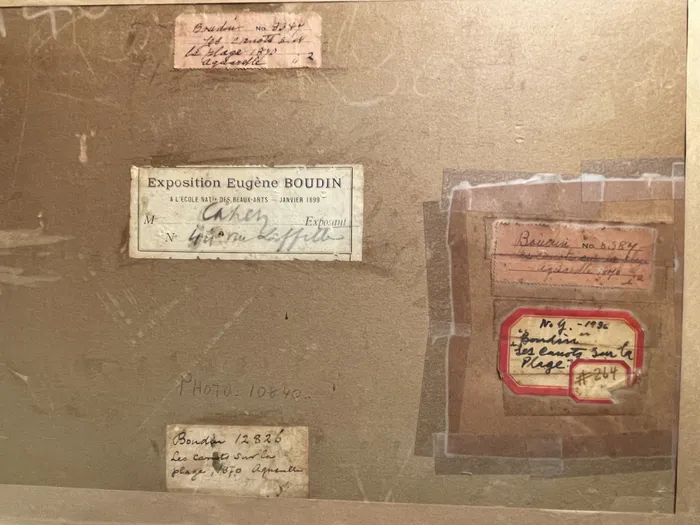 Boudin No 3387
Les canots sur
la plage 1870
aquarelle 2
Exposition Eugène BOUDIN
A L'ÉCOLE NATle DES BEAUX-ARTS — JANVIER 1899
M Cahen Exposant
No rue Laffitte
PHOTO_10840.
Boudin 12826
Les canots sur la
plage, 1870 Aquarelle
Boudin No 3387
Les canots sur la plage
aquarelle 1870 2
N.Y. - 1936
"Boudin"
"Les canots sur la
Plage"
#264